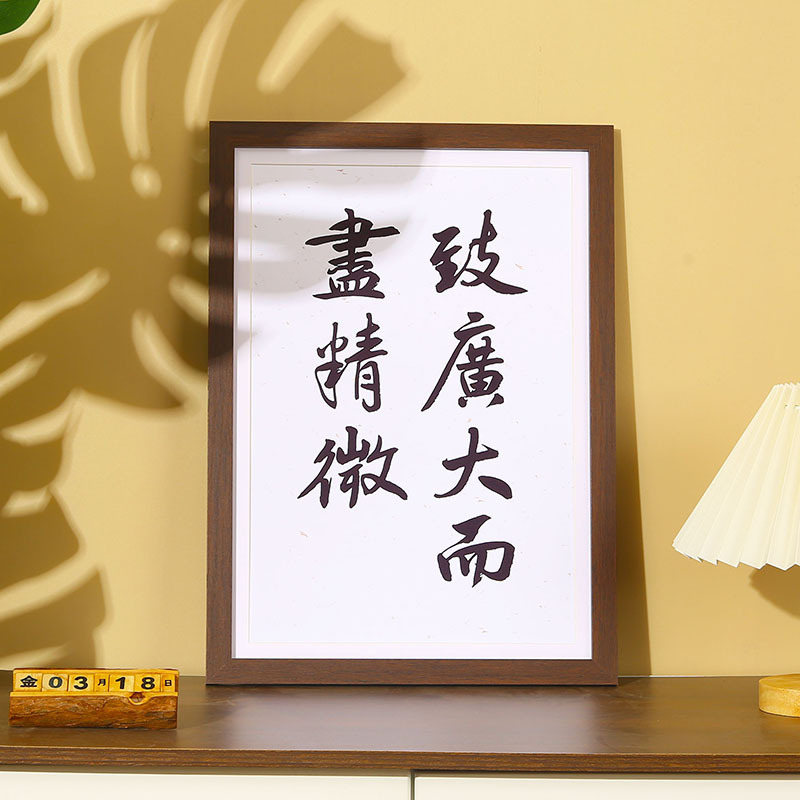 致廣大而
盡精微
金03月18日